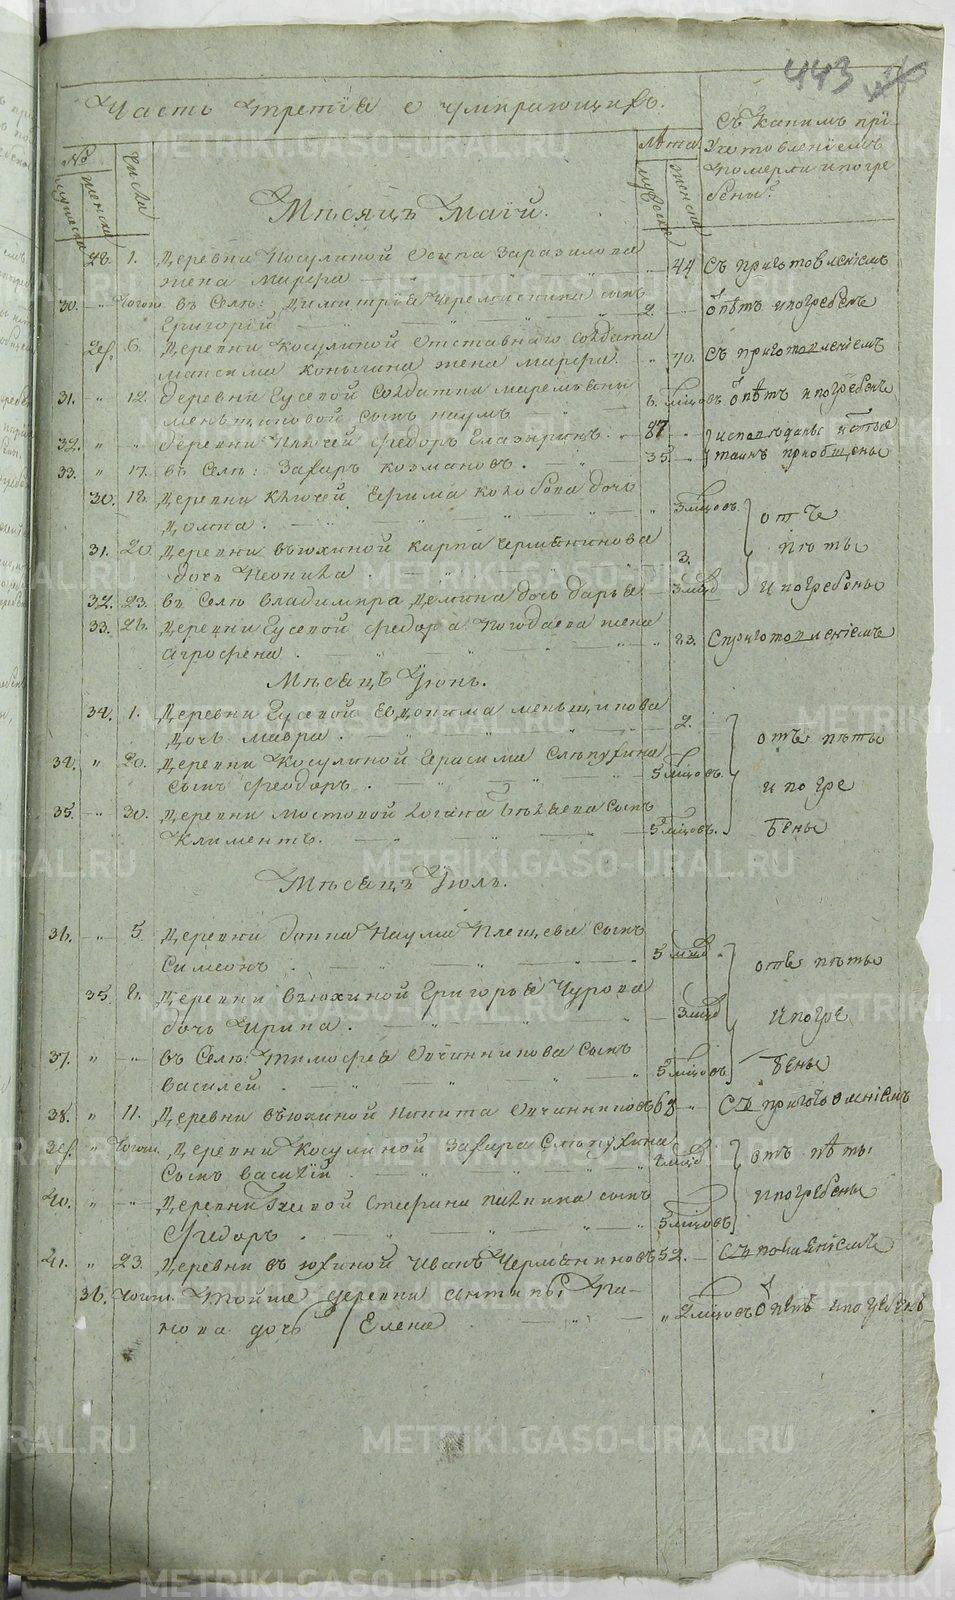 443
Часть третія о умирающихъ.
Съ какимъ прі-
уготовленіемъ
померли и погре
бены?
№
мужеска
женска
числа
лѣта
мужеска
женска
Мѣсяцъ Маій.
28. 1. Деревни Косулиной Осипа Заразилова
жена Марфа 44 Съ приготовленіемъ
30. Тогож. въ Селѣ: Димитрія Черемискина сынъ
Григорій 2. отпѣтъ и погребенъ
29. 6. Деревни Косулиной отставнаго солдата
Максима Коныгина жена Марфа. 70. Съ приготовленіемъ
31. 12. Деревни Гусевой Солдатки Маремьяны
Меньщиковой сынъ Наумъ 6. мцовъ отпѣтъ и погребенъ
32. Деревни Ключей Федоръ Елазыринъ. 87 исповѣданы и Стыя
33. 17. въ Селѣ: Захаръ Козмановъ. 35. таинъ пріобщены
30. 18. Деревни Ключей Ефима Колобова дочь
Домна. 3 мцовъ от
31. 20. Деревни Вьюхиной Карпа Чермянинова
дочь Неонила 3. пѣты
32. 23. въ Селѣ Владимира Демина дочь Дарья 3 мцо и погребены
33. 26. Деревни Гусевой Федора Погодаева жена
Агрофена. 23. С приготовленіемъ
Мѣсяцъ Іюнь.
34. 1. Деревни Гусевой Евдокима Меньщикова
дочь Мавра. 2. отъ пѣты
34. 20. Деревни Косулиной Герасима Слепухина
сынъ Феодоръ. 5 мцовъ. и погре
35. 30. Деревни Мостовой Іоанна Бѣляева сынъ
Климентъ. 5 мцовъ. бены
Мѣсяцъ Іюль.
36. 5. Деревни Наума Плещева сынъ
Симеонъ. 5 мцо отъ пѣты
35. 8. Деревни Вьюхиной Григорья Чурова
дочь Ирина. 3 мцо и погре
37. въ Селѣ: Тимофея Овчинникова сынъ
Василей. 5 мцовъ бены
38. 11. Деревни Вьюхиной Никита Овчинниковъ 68 Съ приготовленіемъ
39. Тогож. Деревни Косулиной Захара Слепухина
сынъ Василій мцо отъ пѣты
40. Деревни Гусевой Стефана сынъ
Федоръ. 5 мцовъ и погребены
41. 23. Деревни Вьюхиной Иванъ Чермяниновъ 52. Съ покаяніемъ
36. Тогож. Тойже деревни
нова дочь Елена 2 мцовъ отпѣта и погребена